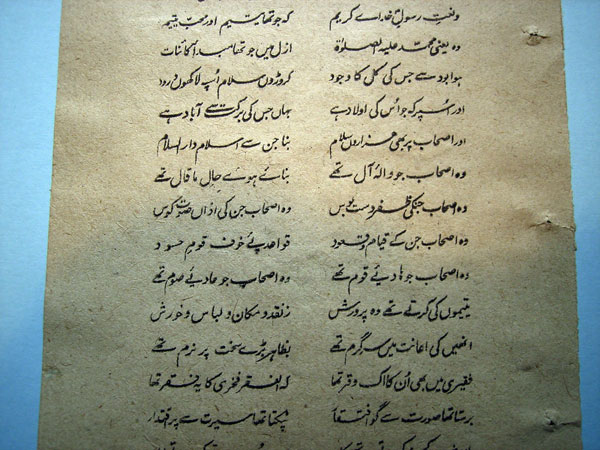 ونعتِ رسولِ خدائے کریم کہ جو تھا یتیم اور محبِ یتیم
وہ یعنی محمد علیہ الصلوٰۃ ازل میں جو تھا مبداِ کائنات
ہوا بود سے جس کی کل کا وجود کروڑوں سلام اُسپہ لاکھوں درود
اور اُسپر کہ جو اُس کی اولاد ہے جہاں جس کی برکت سے آباد ہے
اور اصحاب پر بھی ہزاروں سلام بنا جن سے اسلام دار السلام
وہ اصحاب جو والۂ آل تھے بنائے ہوے حالِ ما قال تھے
وہ اصحاب جنکی ظفر دست بوس وہ اصحاب جن کی اذاں کوس
وہ اصحاب جن کے قیام و قعود قواعد پئے خوف قوم حسود
وہ اصحاب جو ہادیٔ قوم تھے وہ اصحاب جو عادیٔ صوم تھے
یتیموں کی کرتے تھے وہ پرورش زنقد و مکان و لباس و خورش
انھیں کی اعانت میں سرگرم تھے بظاہر بڑے سخت پر نرم تھے
فقیری میں بھی اُن کا اک وقر تھا کہ الفقر فخری کا یہ فخر تھا
برستا تھا صورت سے گو افتقار ٹپکتا تھا سیرت سے پر اقتدار